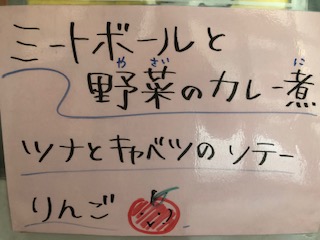 ミートボールと
野菜のカレー煮
ツナとキャベツのソテー
りんご